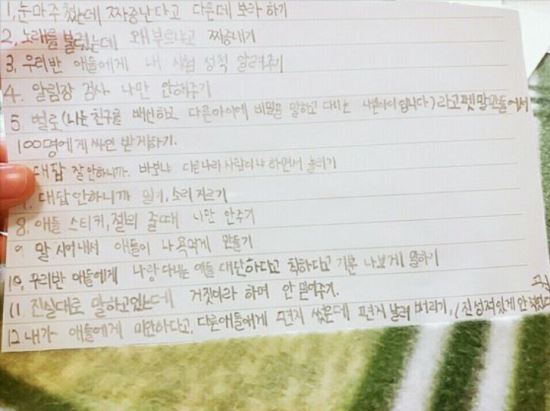 1. 눈마주쳤는데 짜증난다고 다른데 보라 하기
2. 노래를 불렀는데 왜 부르냐고 짜증내기
3. 우리반 애들에게 내 시험 성적 알려주기
4. 알림장 검사 나만 안해주기
5 벌로 (나는 친구를 배신하고 다른아이에 비밀을 말하고 다니는 나쁜아이 입니다)라고 팻말 만들어서
100명에게 싸인 받게하기.
대답 잘 안하니까. 바보냐 다른나라 사람이냐 하면서 놀리기
7. 대답안하니까 밀기, 소리 지르기
8. 애들 스티커, 젤리 줄때 나만 안주기
9 말 지어내서 애들이 나 욕먹게 만들기
10 우리반 애들에게 나랑 다니는 애들 대단하다고 착하다고 기분 나쁘게 말하기
11 진실대로 말하고있는데 거짓이라 하며 안 믿어주기.
12 내가 애들에게 미안하다고, 다른애들에게 편지 썼는데 편지 날려 버리기, (진정성있게 안